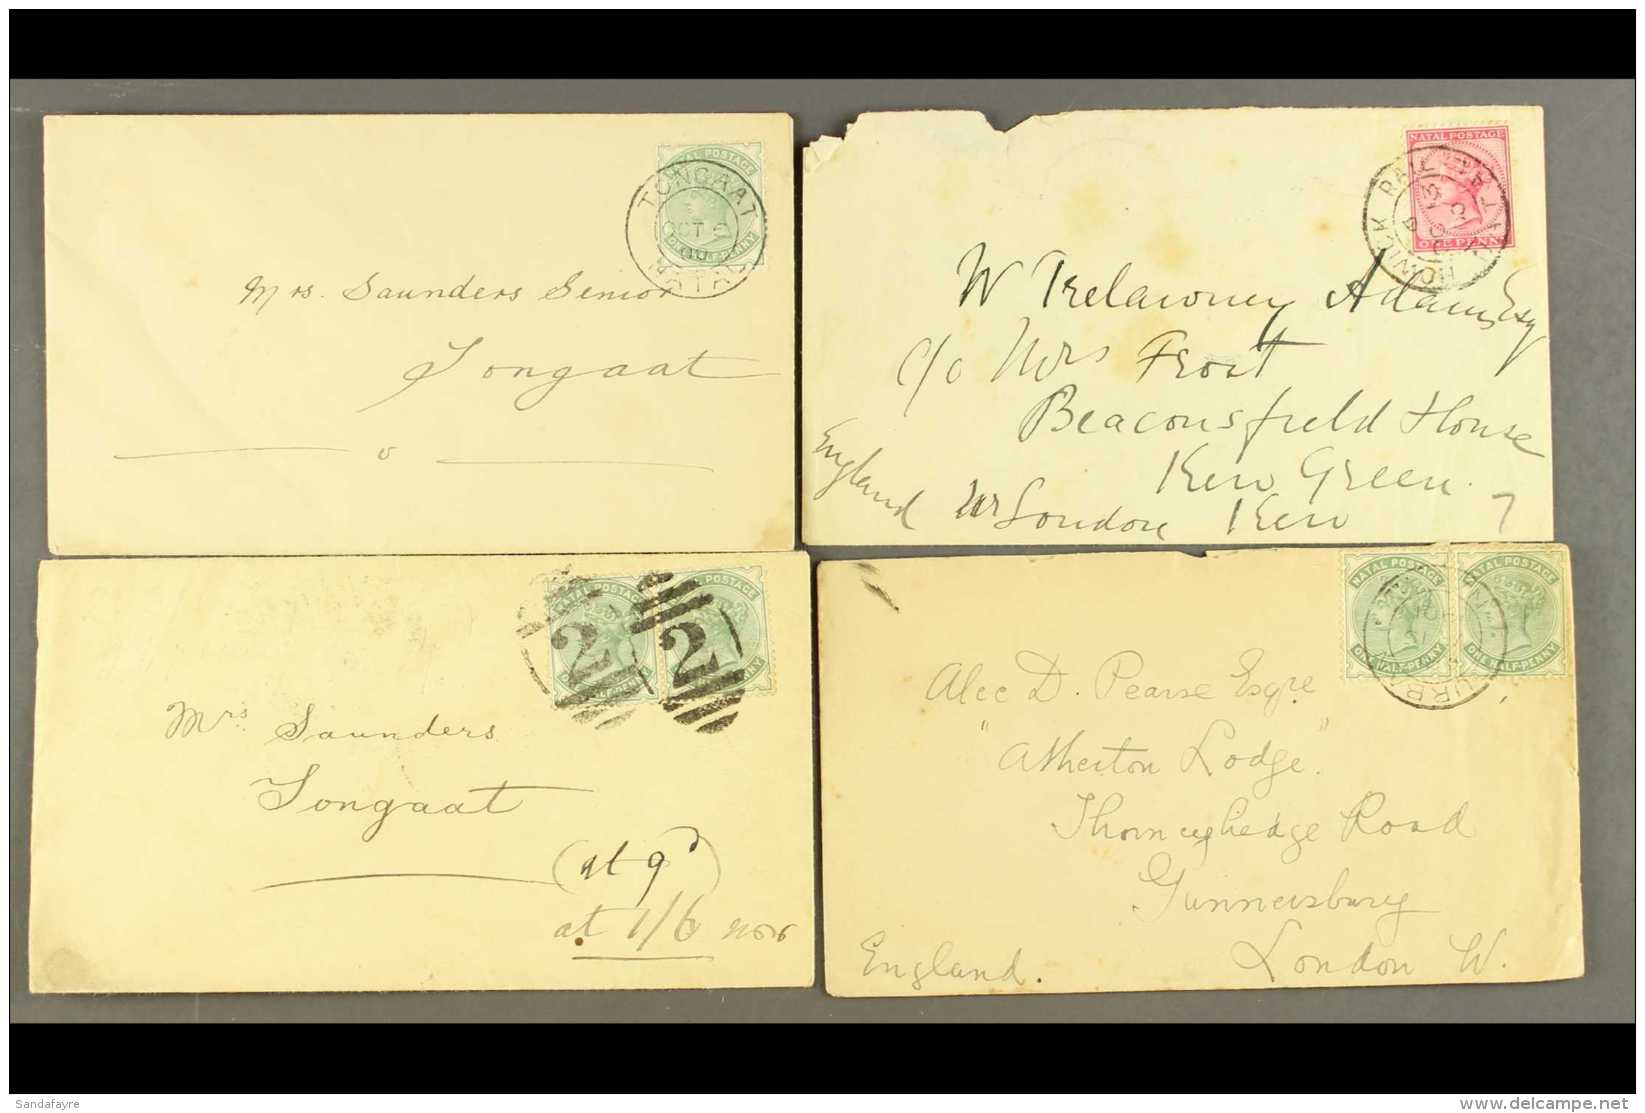 NATAL POSTAGE
TONGAAT
OCT
HALF-PENNY
Mrs. Saunders Senior
Tongaat
NATAL POSTAGE
ONE PENNY
HOWICK RAIL
W Trelawney Adams, Esq
c/o Mrs Frost
Beaconsfield House
Kew Green.
England nr London Kew 7
NATAL POSTAGE
ONE HALF-PENNY
2
NATAL POSTAGE
2
Mrs. Saunders
Tongaat
(at 9d)
at 1/6
NATAL POSTAGE
ONE HALF-PENNY
NATAL POSTAGE
ONE HALF-PENNY
Alec D. Pearse Esqre
"Atherton Lodge".
Road
Gunnersbury
England. London W.
Sandafayre
www.delcampe.net